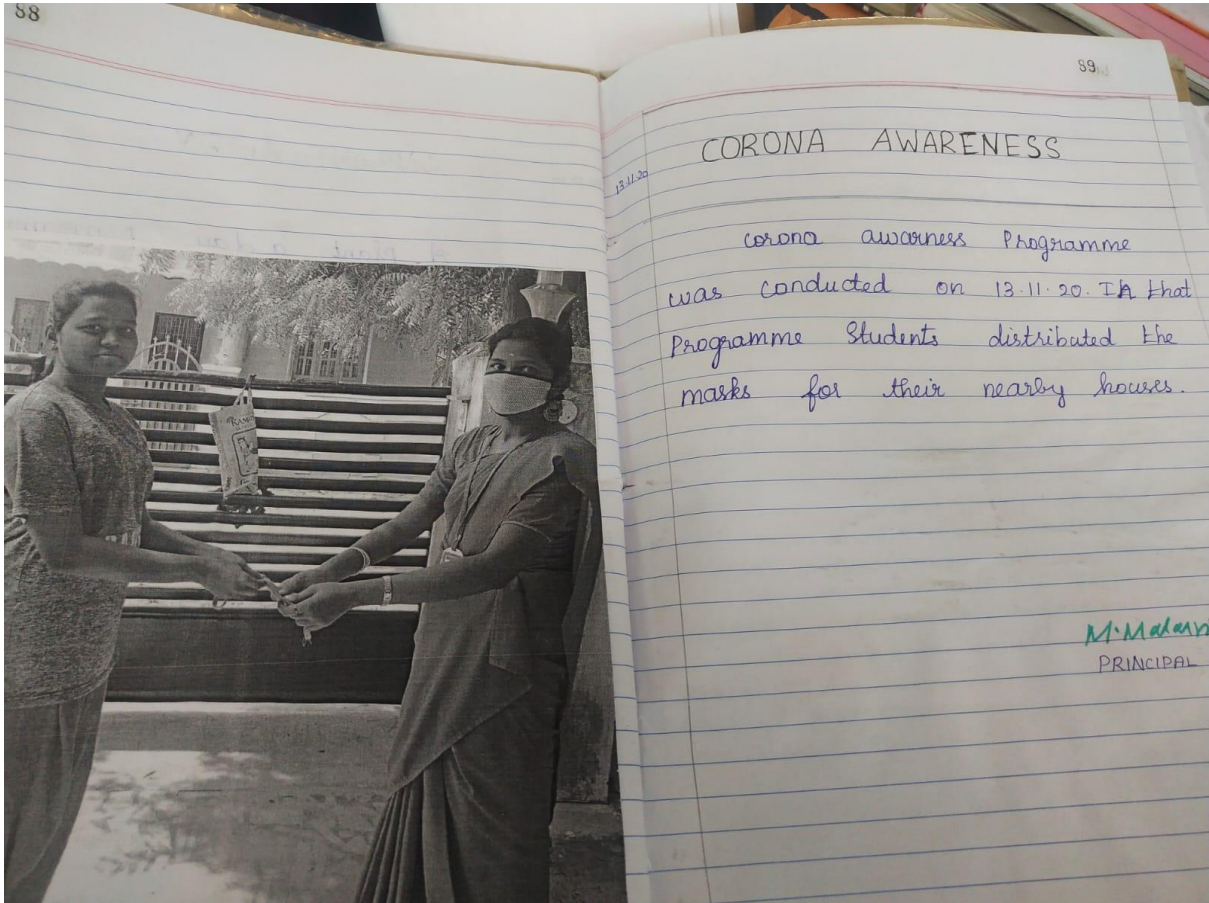 88
89
CORONA AWARENESS
13.11.20
corona awarness Programme
was conducted on 13.11.20. In that
Programme Students distributed the
masks for their nearby houses.
PRINCIPAL